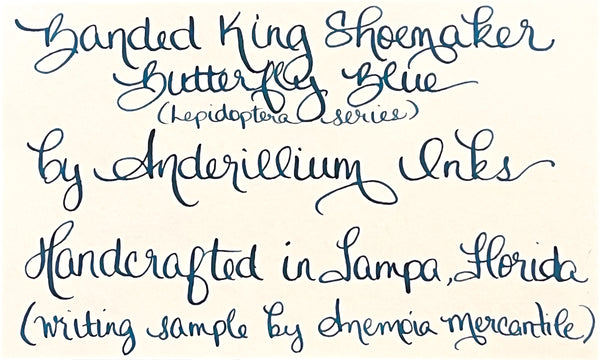 Banded King Shoemaker
Butterfly Blue
(Lepidoptera series)
by Anderillium Inks
Handcrafted in Tampa, Florida
(writing sample by Anemoia Mercantile)